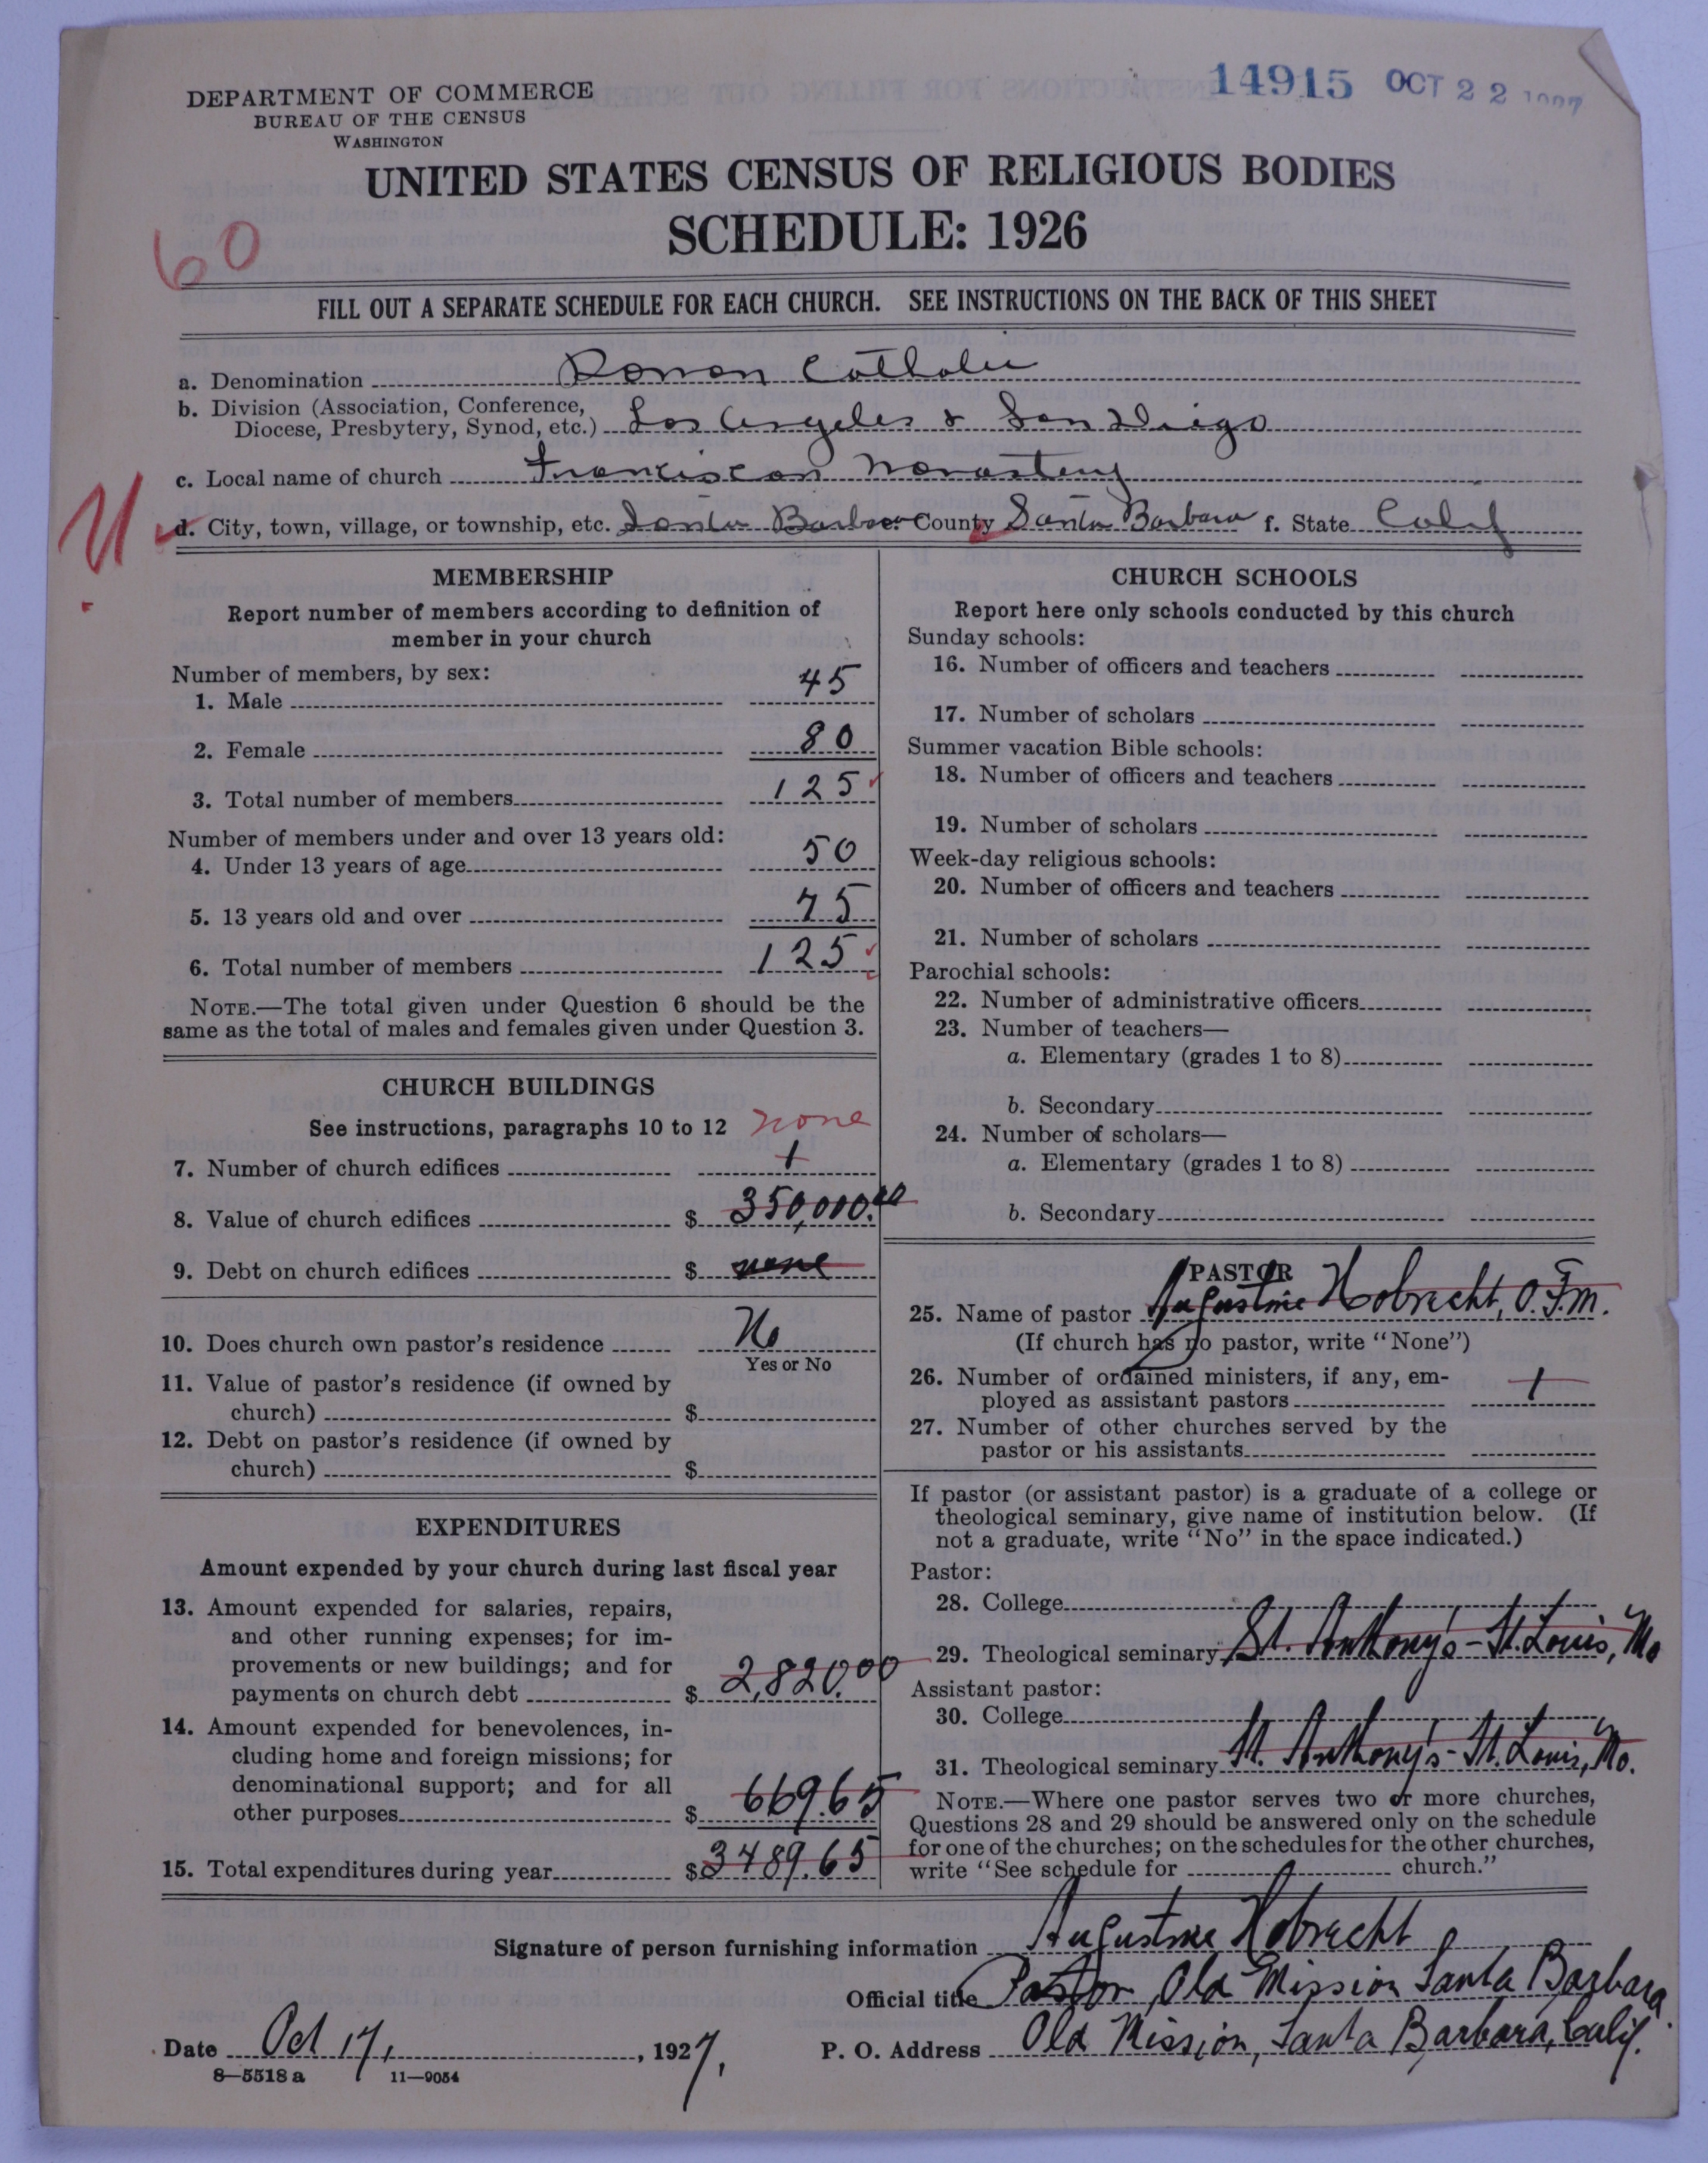 14915 OCT 22 1927
DEPARTMENT OF COMMERCE
BUREAU OF THE CENSUS
WASHINGTON
UNITED STATES CENSUS OF RELIGIOUS BODIES
SCHEDULE: 1926
60
FILL OUT A SEPARATE SCHEDULE FOR EACH CHURCH. SEE INSTRUCTIONS ON THE BACK OF THIS SHEET
a. Denomination Roman Catholic
b. Division (Association, Conference,
Diocese, Presbytery, Synod, etc.) Los Angeles & San Diego
c. Local name of church Franciscan Monastery
d. City, town, village, or township, etc. Santa Barbara e. County Santa Barbara f. State Calif
MEMBERSHIP
Report number of members according to definition of
member in your church
Number of members, by sex:
1. Male 45
2. Female 80
3. Total number of members 125
Number of members under and over 13 years old:
4. Under 13 years of age 50
5. 13 years old and over 75
6. Total number of members 125
NOTE.—The total given under Question 6 should be the
same as the total of males and females given under Question 3.
CHURCH BUILDINGS
See instructions, paragraphs 10 to 12 none
7. Number of church edifices 1
8. Value of church edifices $ 350,000.00
9. Debt on church edifices $ none
10. Does church own pastor's residence No
Yes or No
11. Value of pastor's residence (if owned by
church) $
12. Debt on pastor's residence (if owned by
church) $
EXPENDITURES
Amount expended by your church during last fiscal year
13. Amount expended for salaries, repairs,
and other running expenses; for im-
provements or new buildings; and for
payments on church debt $ 2,820.00
14. Amount expended for benevolences, in-
cluding home and foreign missions; for
denominational support; and for all
other purposes $ 669.65
15. Total expenditures during year $ 3489.65
CHURCH SCHOOLS
Report here only schools conducted by this church
Sunday schools:
16. Number of officers and teachers
17. Number of scholars
Summer vacation Bible schools:
18. Number of officers and teachers
19. Number of scholars
Week-day religious schools:
20. Number of officers and teachers
21. Number of scholars
Parochial schools:
22. Number of administrative officers
23. Number of teachers—
a. Elementary (grades 1 to 8)
b. Secondary
24. Number of scholars—
a. Elementary (grades 1 to 8)
b. Secondary
PASTOR
25. Name of pastor Augustine Hobrecht, O.F.M.
(If church has no pastor, write "None")
26. Number of ordained ministers, if any, em-
ployed as assistant pastors 1
27. Number of other churches served by the
pastor or his assistants
If pastor (or assistant pastor) is a graduate of a college or
theological seminary, give name of institution below. (If
not a graduate, write "No" in the space indicated.)
Pastor:
28. College
29. Theological seminary St. Anthony's - St. Louis, Mo
Assistant pastor:
30. College
31. Theological seminary St. Anthony's - St. Louis, Mo.
NOTE.—Where one pastor serves two or more churches,
Questions 28 and 29 should be answered only on the schedule
for one of the churches; on the schedules for the other churches,
write "See schedule for church."
Signature of person furnishing information Augustine Hobrecht
Official title Pastor, Old Mission Santa Barbara
Date Oct 17, , 1927. P. O. Address Old Mission, Santa Barbara, Calif.
8—5518 a 11—9054